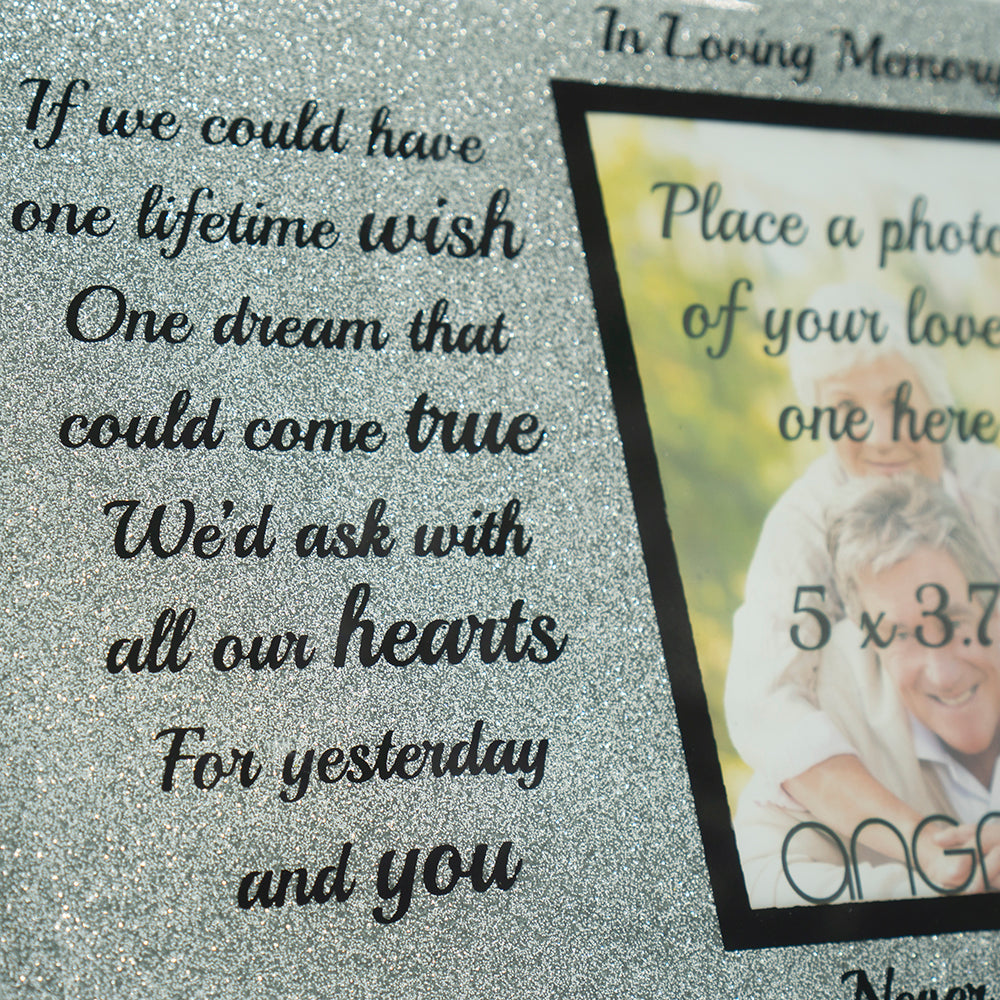 In Loving Memory
If we could have
one lifetime wish
One dream that
could come true
We'd ask with
all our hearts
For yesterday
and you
Place a photo
of your love
one here
5 x 3.7
Never